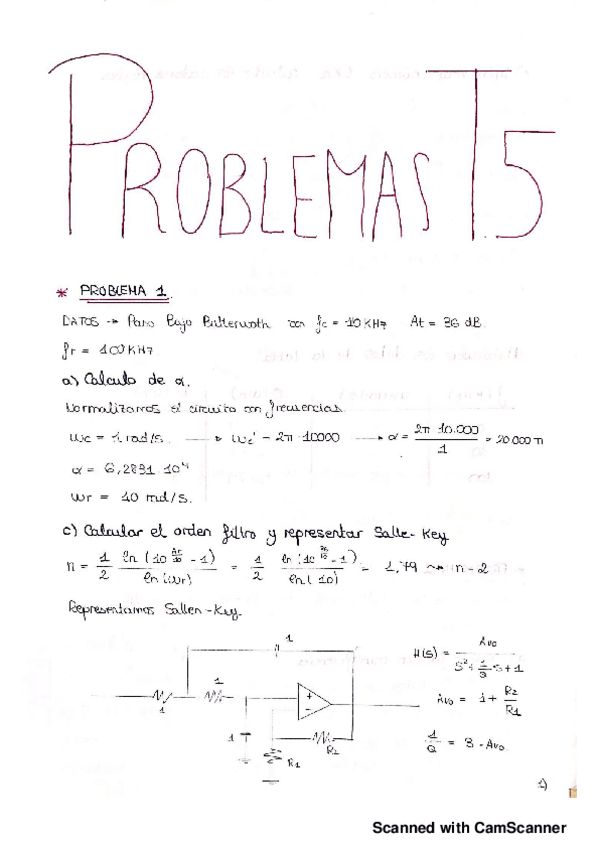 PROBLEMAS T.5
* PROBLEMA 1.
DATOS → Paso Bajo Butterwoth con fc = 10KHz At = 36 dB.
fr = 100KHz
a) Calculo de α.
Normalizamos el circuito con frecuencias.
ωc = 1 rad/s. → ωc' - 2π 10000 → α = 2π 10.000 / 1 = 20 000 π
α = 6,2831 10⁴
ωr = 10 rad/s.
c) Calcular el orden filtro y representar Salle-Key
n = 1/2 ln (10^(At/10) - 1) / ln(ωr) = 1/2 ln (10^(36/10) - 1) / ln(10) = 1,79 ⇝ n - 2
Representamos Sallen-Key.
1
H(s) = Avo / S² + 1/Q s + 1
1
1
Avo = 1 + R2/R1
+
-
1
R2
R1
1/Q = 3 - Avo.
1)
Scanned with CamScanner